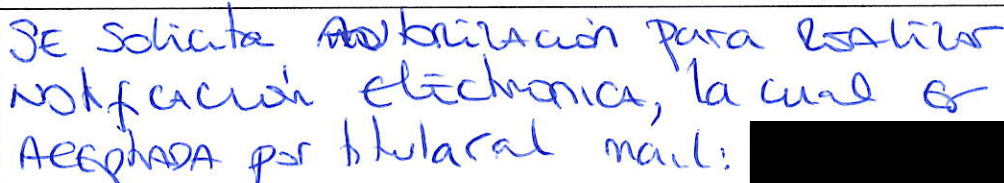 SE Solicita AutorizAción para REALizar
NotificAción ElEctronica, la cual Es
AcEptADA por titular al mail: